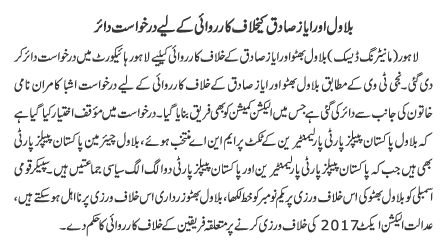 بلاول اور ایاز صادق کیخلاف کارروائی کے لیے درخواست دائر
لاہور (مانیٹرنگ ڈیسک) بلاول بھٹو اور ایاز صادق کے خلاف کارروائی کیلیے لاہور ہائیکورٹ میں درخواست دائر کر
دی گئی۔ نجی ٹی وی کے مطابق بلاول بھٹو اور ایاز صادق کے خلاف کارروائی کے لیے درخواست اشبا کامران نامی
خاتون کی جانب سے دائر کی گئی ہے جس میں الیکشن کمیشن کو بھی فریق بنایا گیا۔ درخواست میں موقف اختیار کیا گیا ہے
کہ بلاول پاکستان پیپلز پارٹی پارلیمنٹیرین کے ٹکٹ پر ایم این اے منتخب ہوئے، بلاول چیئرمین پاکستان پیپلز پارٹی
بھی ہیں جب کہ پاکستان پیپلز پارٹی پارلیمنٹیرین اور پاکستان پیپلز پارٹی دو الگ الگ سیاسی جماعتیں ہیں۔ سپیکر قومی
اسمبلی کو بلاول بھٹو کی اس خلاف ورزی پر یکم نومبر کو خط لکھا، بلاول بھٹو زرداری اس خلاف ورزی پر نااہل ہوسکتے ہیں،
عدالت الیکشن ایکٹ 2017 کی خلاف ورزی کرنے پر متعلقہ فریقین کے خلاف کارروائی کا حکم دے۔